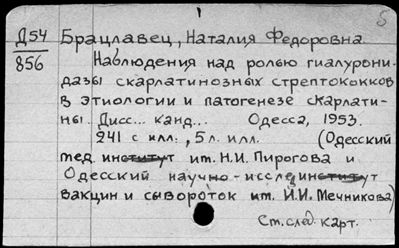 5
Д54 Брацлавец, Наталия Федоровна
856 Наблюдения над ролью гиалурони-
дазы скарлатинозных стрептококков
в этиологии и патогенезе скарлати-
ны. Дисс... канд... Одесса, 1953.
241 с илл., 5 л. илл. (Одесский
мед. институт им. Н.И. Пирогова и
Одесский научно-исслединститут
вакцин и сывороток им. И.И. Мечникова)
См. след. карт.